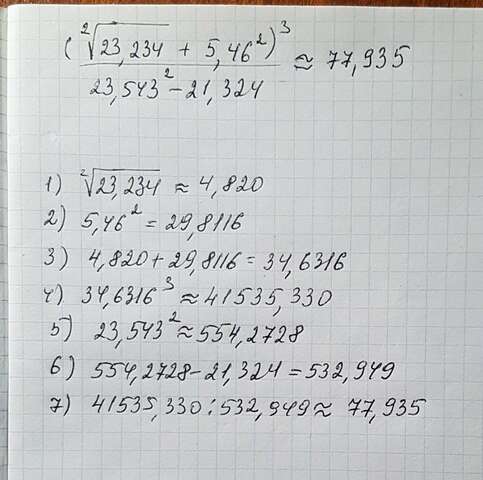 (²√23,234 + 5,46²)³ / 23,543² - 21,324 ≈ 77,935
1) ²√23,234 ≈ 4,820
2) 5,46² = 29,8116
3) 4,820 + 29,8116 = 34,6316
4) 34,6316³ ≈ 41535,330
5) 23,543² ≈ 554,2728
6) 554,2728 - 21,324 = 532,949
7) 41535,330 : 532,949 ≈ 77,935